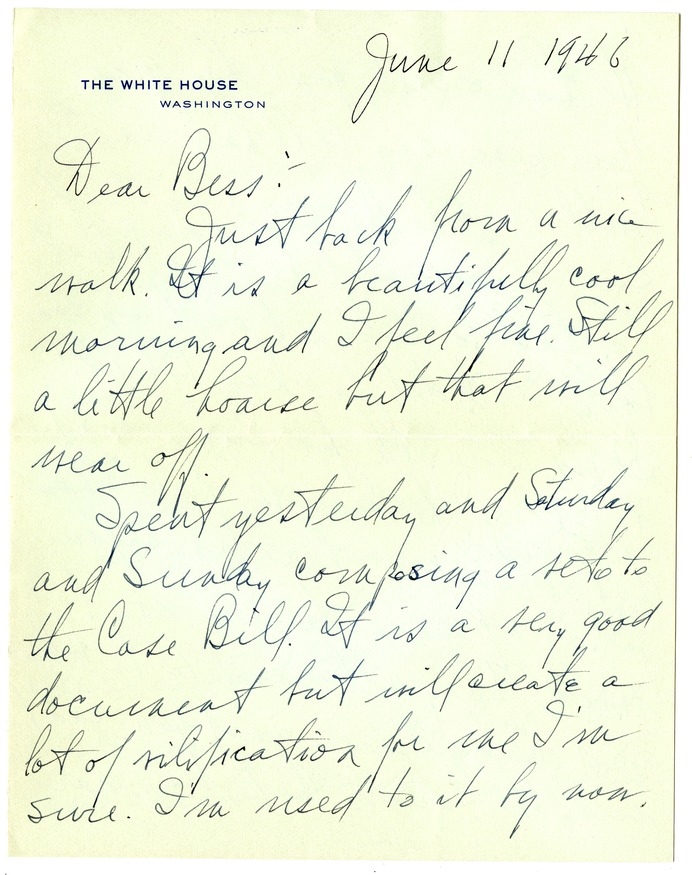 June 11 1946
THE WHITE HOUSE
WASHINGTON
Dear Bess:-
Just back from a nice
walk. It is a beautifully cool
morning and I feel fine. Still
a little hoarse but that will
wear off.
Spent yesterday and Saturday
and Sunday composing a veto to
the Case Bill. It is a very good
document but will create a
lot of vilification for me I'm
sure. I'm used to it by now.